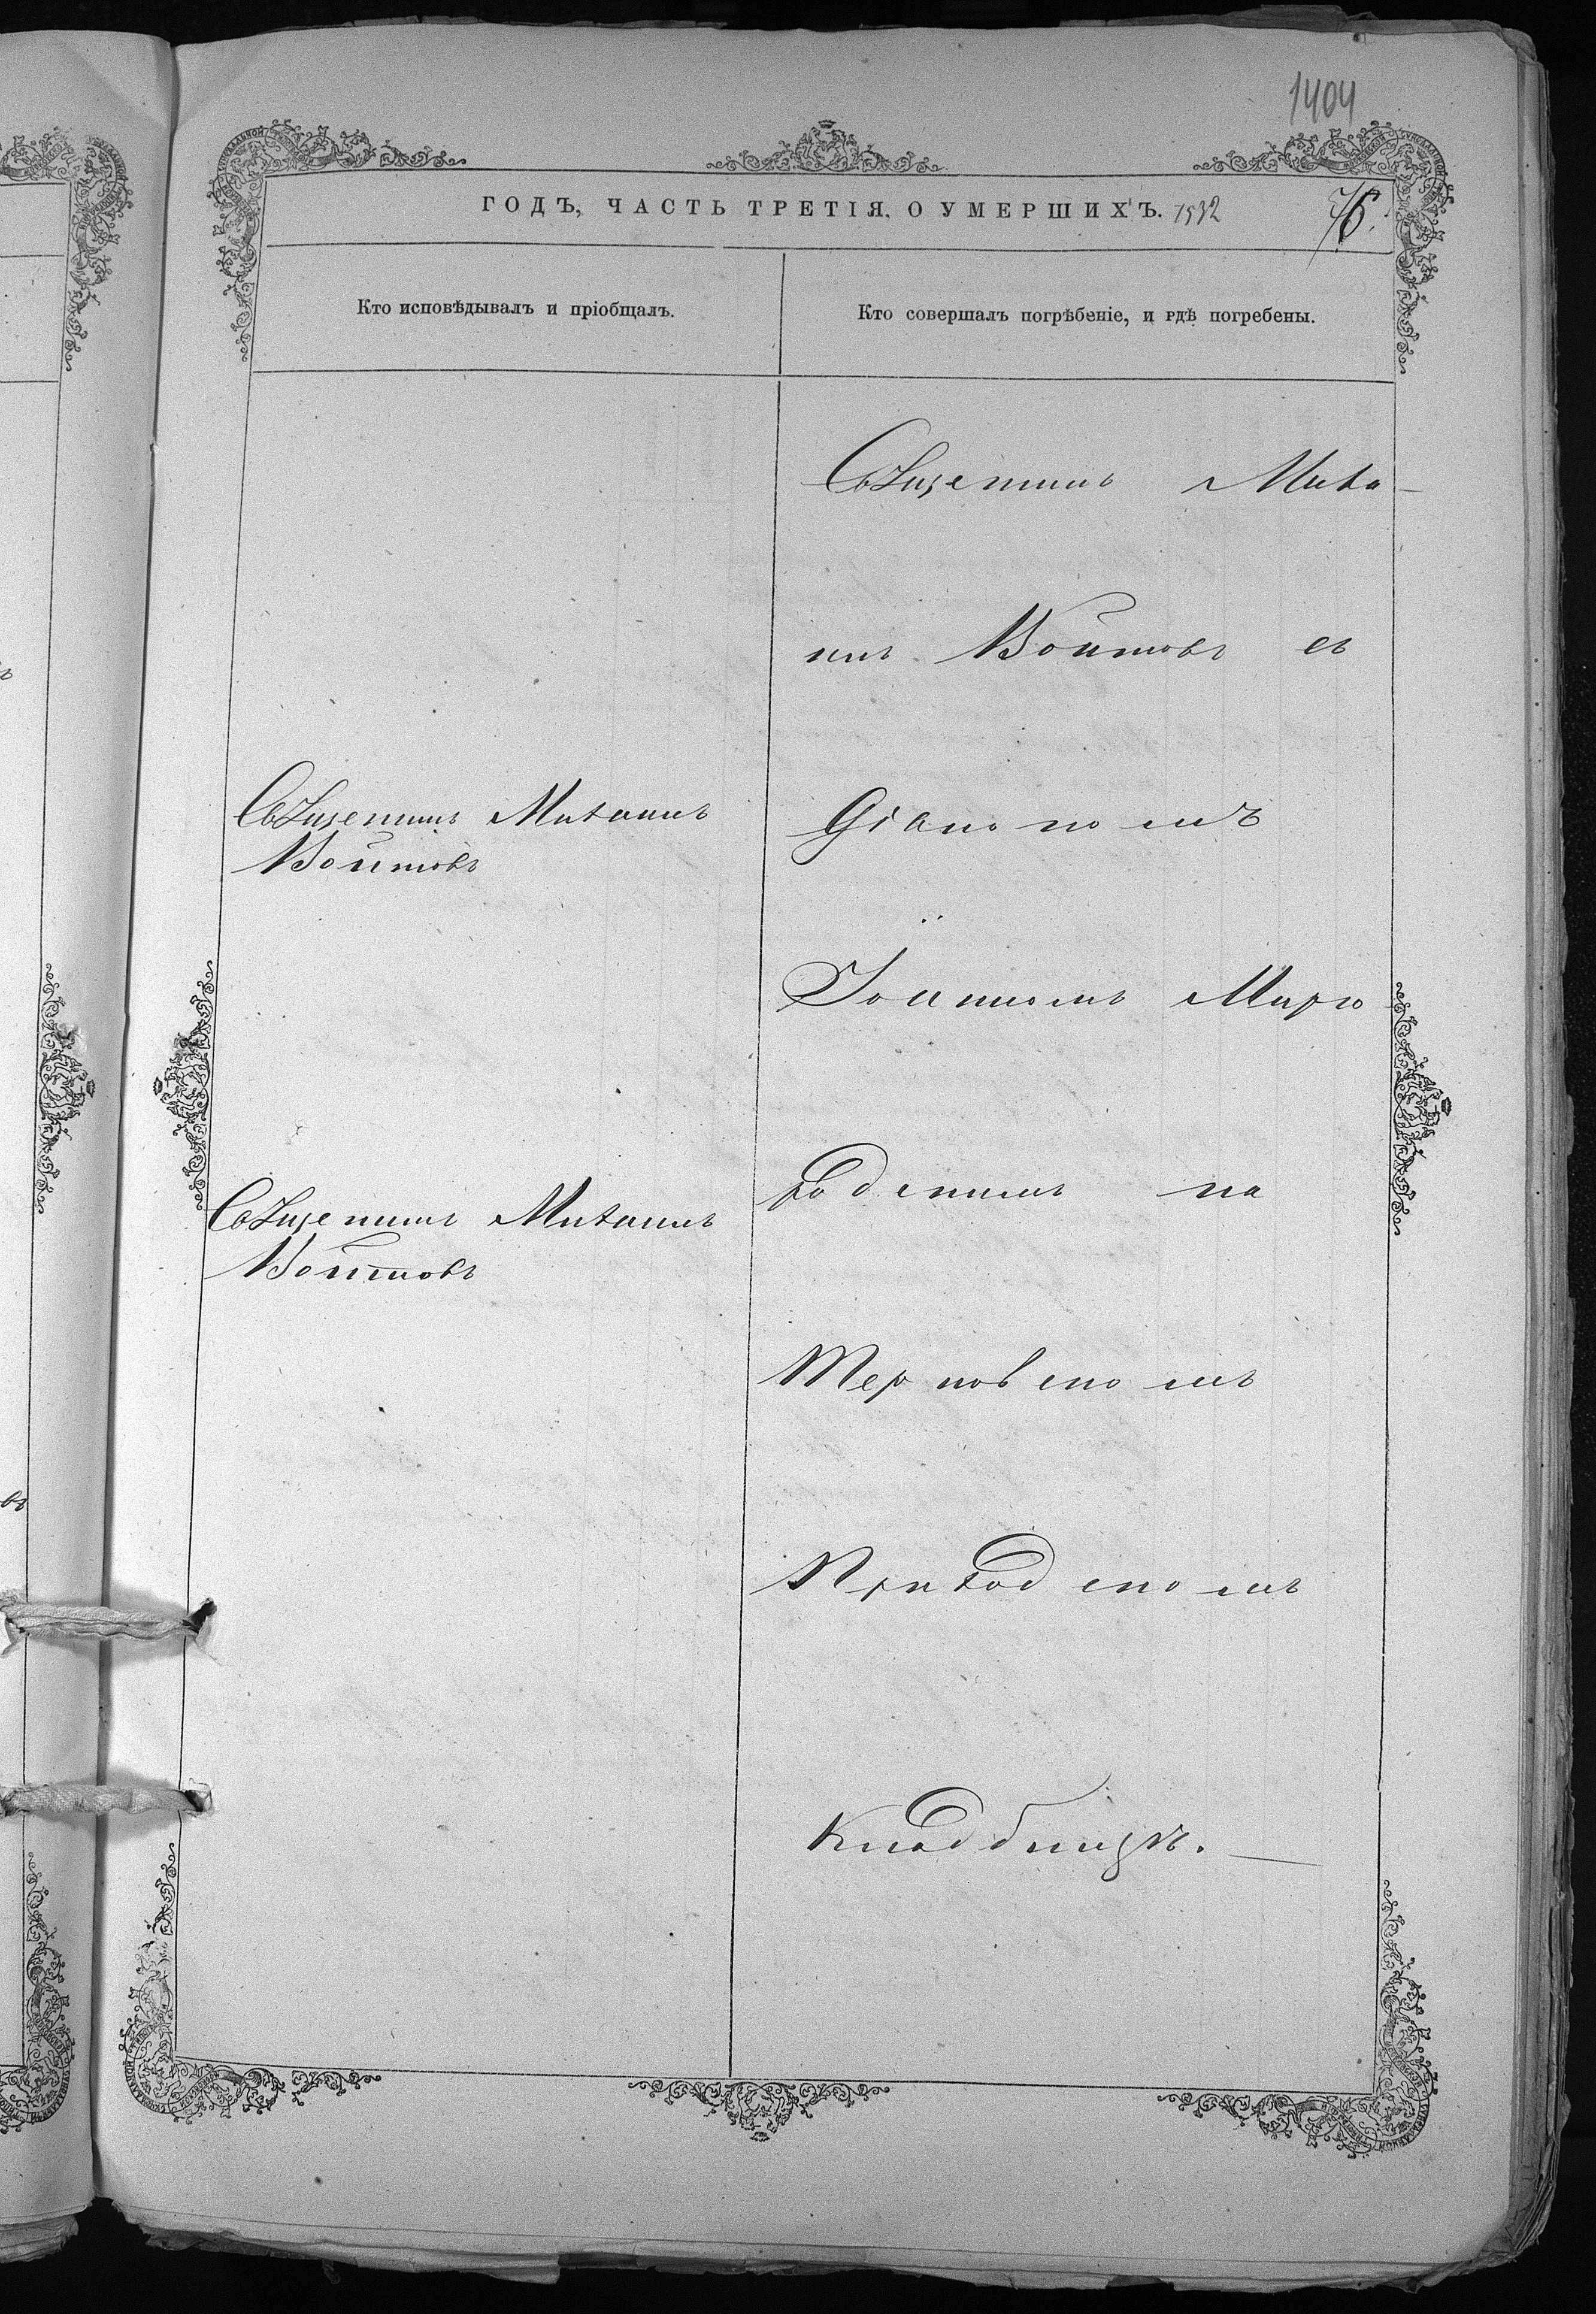 1404
ГОДЪ, ЧАСТЬ ТРЕТІЯ, О УМЕРШИХЪ. 1532
76.
Кто исповѣдывалъ и пріобщалъ.
Кто совершалъ погрѣбеніе, и гдѣ погребены.
Священникъ Михаилъ
Войтовъ
Священникъ Михаилъ
Войтовъ
Священникъ Миха-
илъ Войтовъ съ
Діакономъ
Іоанномъ
на
Терновскомъ
Приходскомъ
Кладбищѣ.